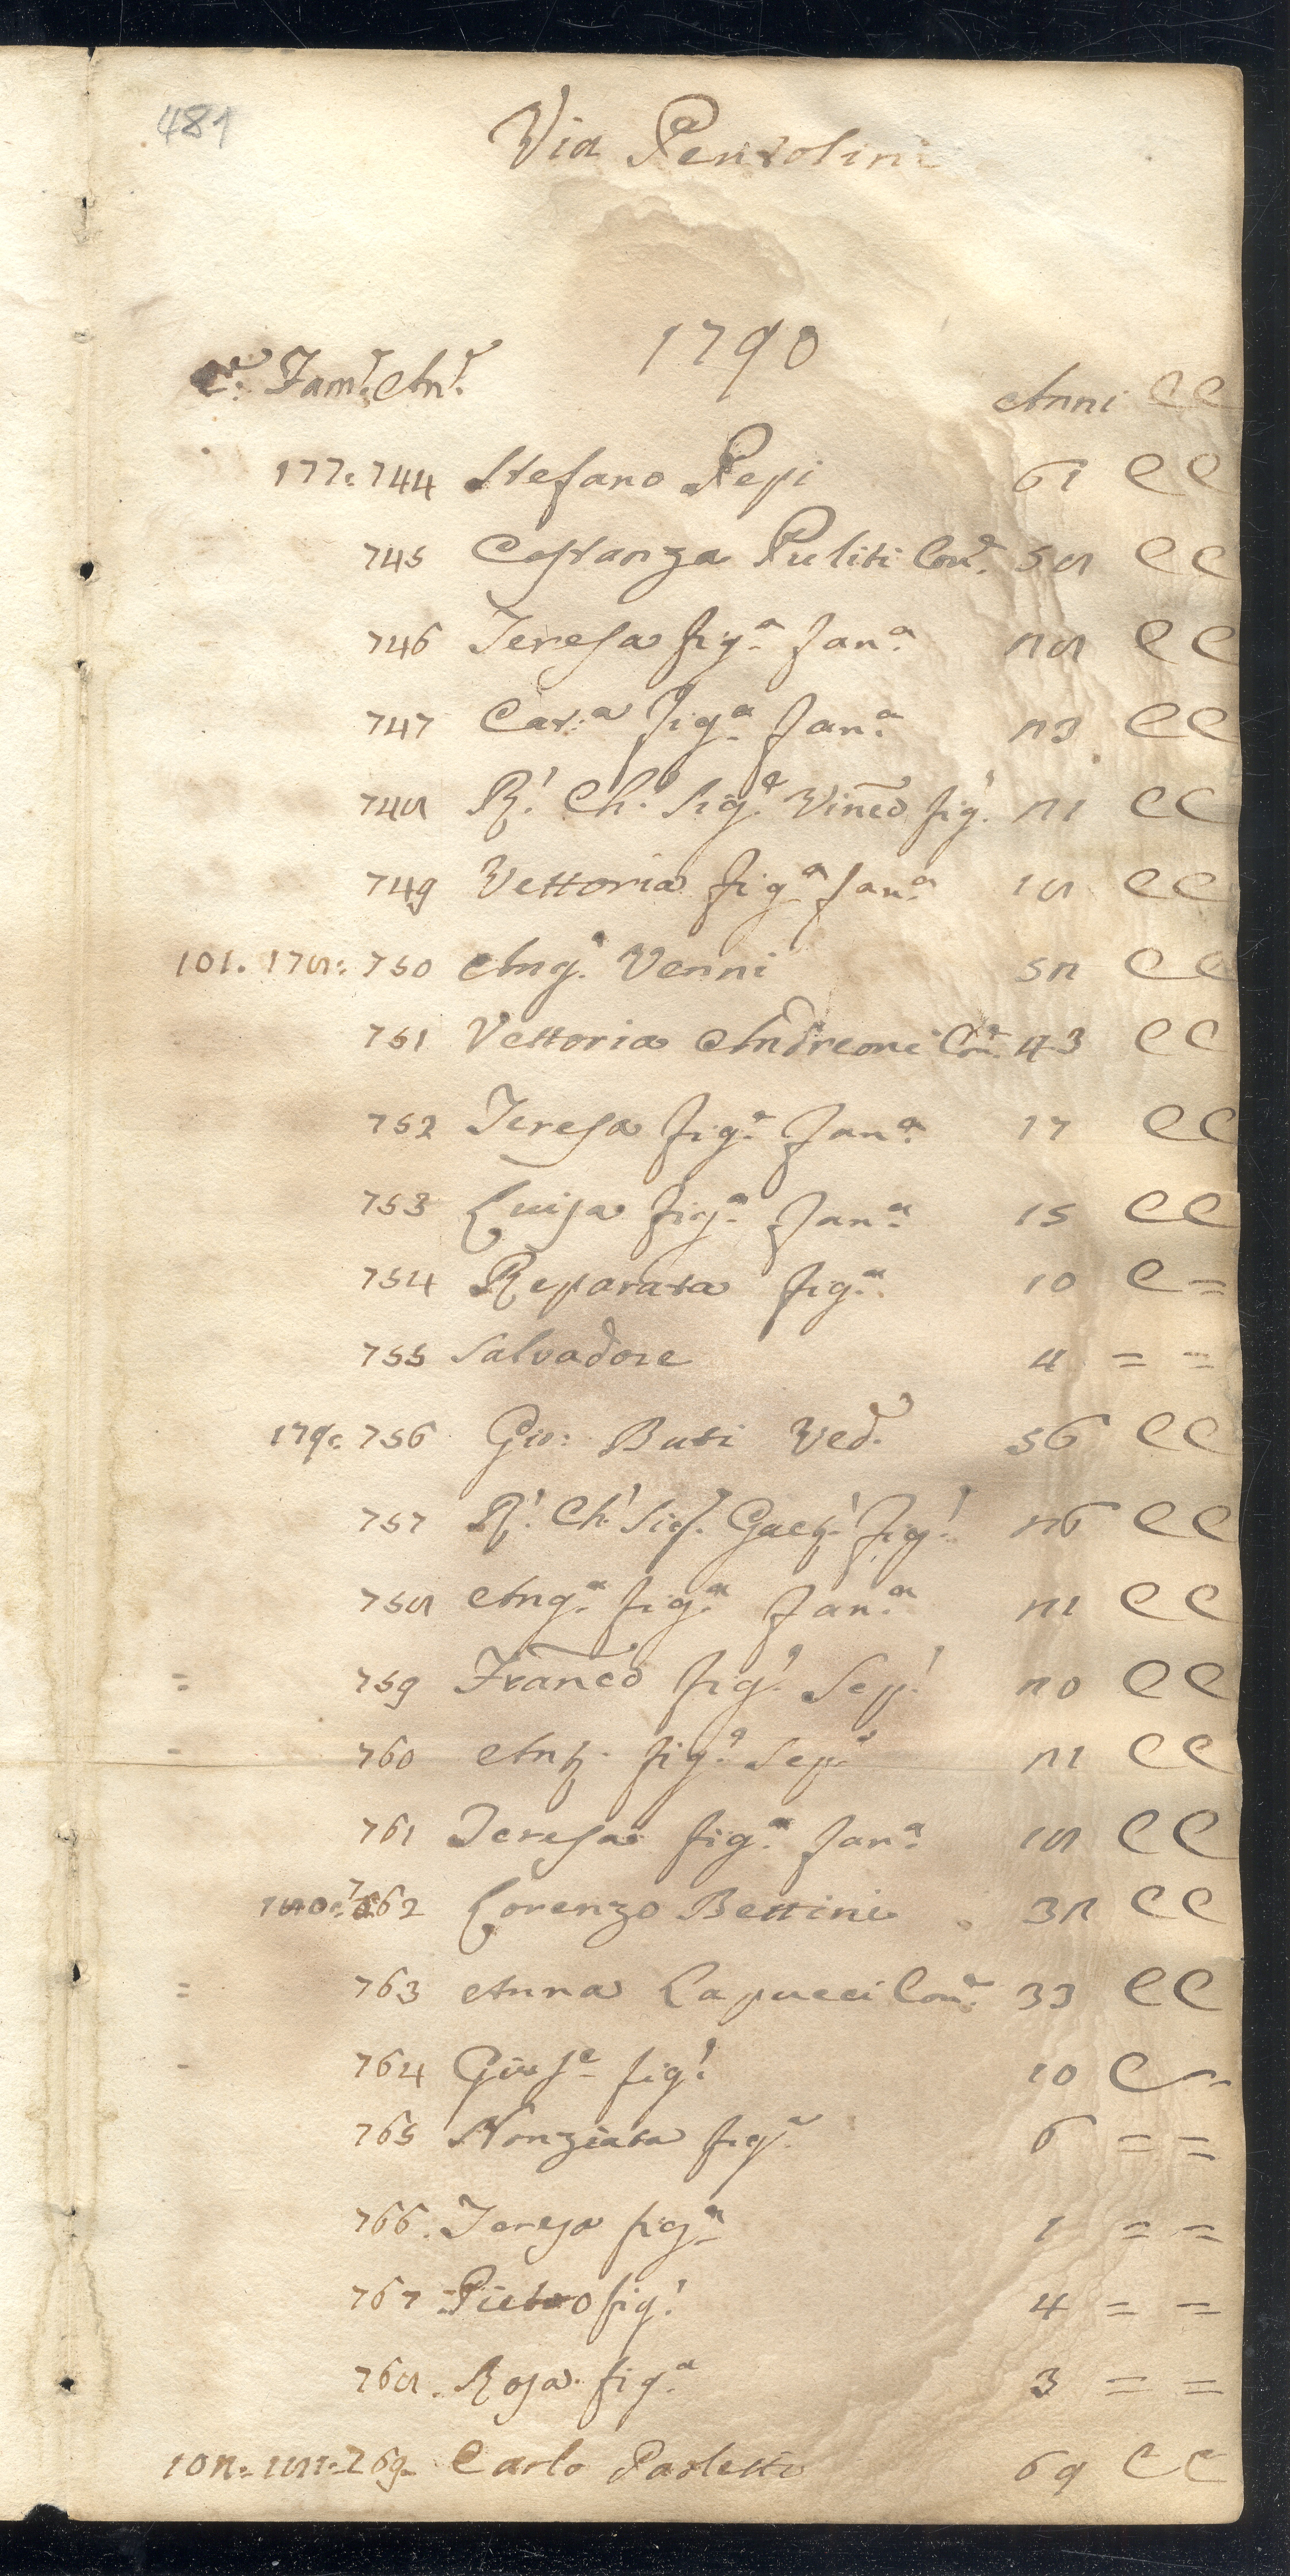 481
Via Pentolini
1790
Cе. Fam.e An.e Anni C C
177: 744 Stefano Pepi 61 C C
745 Costanza Puliti Con.e 58 C C
746 Teresa fig.a fan.a 28 C C
747 Cat.a fig.a fan.a 23 C C
748 R.o Ch.o Sig.e Vinc̃o fig.o 21 C C
749 Vettoria fig.a fan.a 18 C C
101. 178: 750 Ang.o Venni 52 C C
751 Vettoria Andreoni Con.e 43 C C
752 Teresa fig.a fan.a 17 C C
753 Luisa fig.a fan.a 15 C C
754 Reparata fig.a 10 C =
755 Salvadore 4 = =
179: 756 Gio: Buti Ved.o 56 C C
757 R.o Ch.o Sig.e Gaet.o fig.o 26 C C
758 Ang.a fig.a fan.a 21 C C
= 759 Franc̃o fig.o Sep.o 20 C C
- 760 Ant.o fig.o Sep.o 21 C C
761 Teresa fig.a fan.a 18 C C
180: 762 Lorenzo Bettini 32 C C
= 763 Anna Lapucci Con.e 33 C C
- 764 Gius.e fig.o 10 C ~
765 Nonziata fig.a 6 = =
766. Teresa fig.a 1 = =
767 Pietro fig.o 4 = =
768. Rosa fig.a 3 = =
102. 181: 769. Carlo Paoletti 69 C C